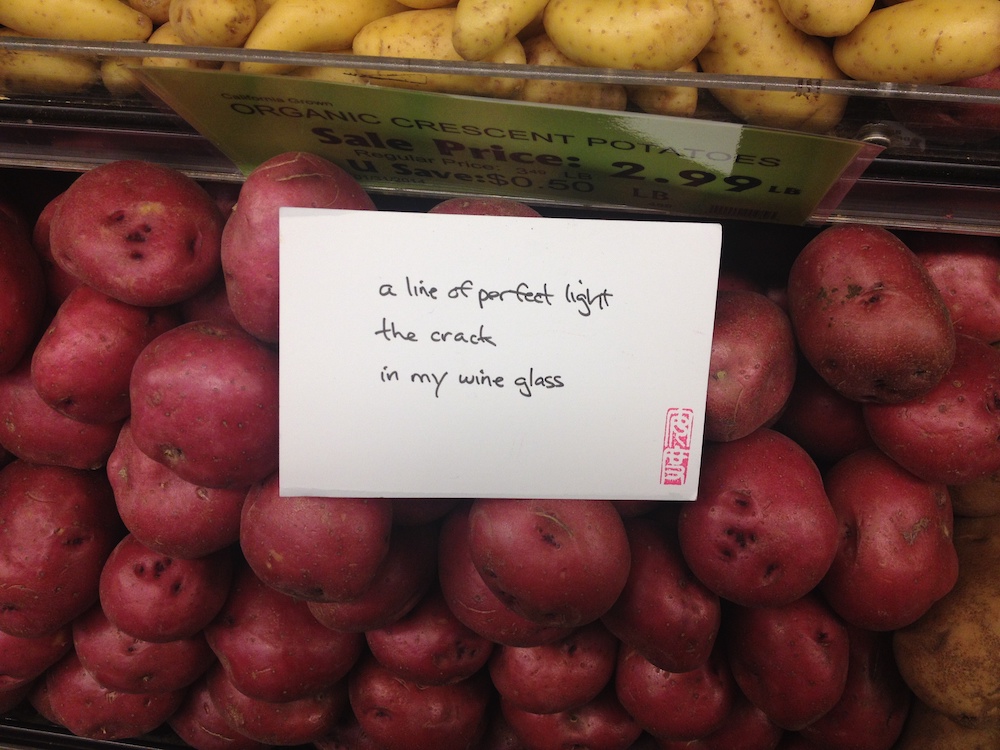 California Grown
ORGANIC CRESCENT POTATOES
Sale Price: 2.99 LB
Regular Price: 3.49 LB
U Save: $0.50 LB
a line of perfect light
the crack
in my wine glass